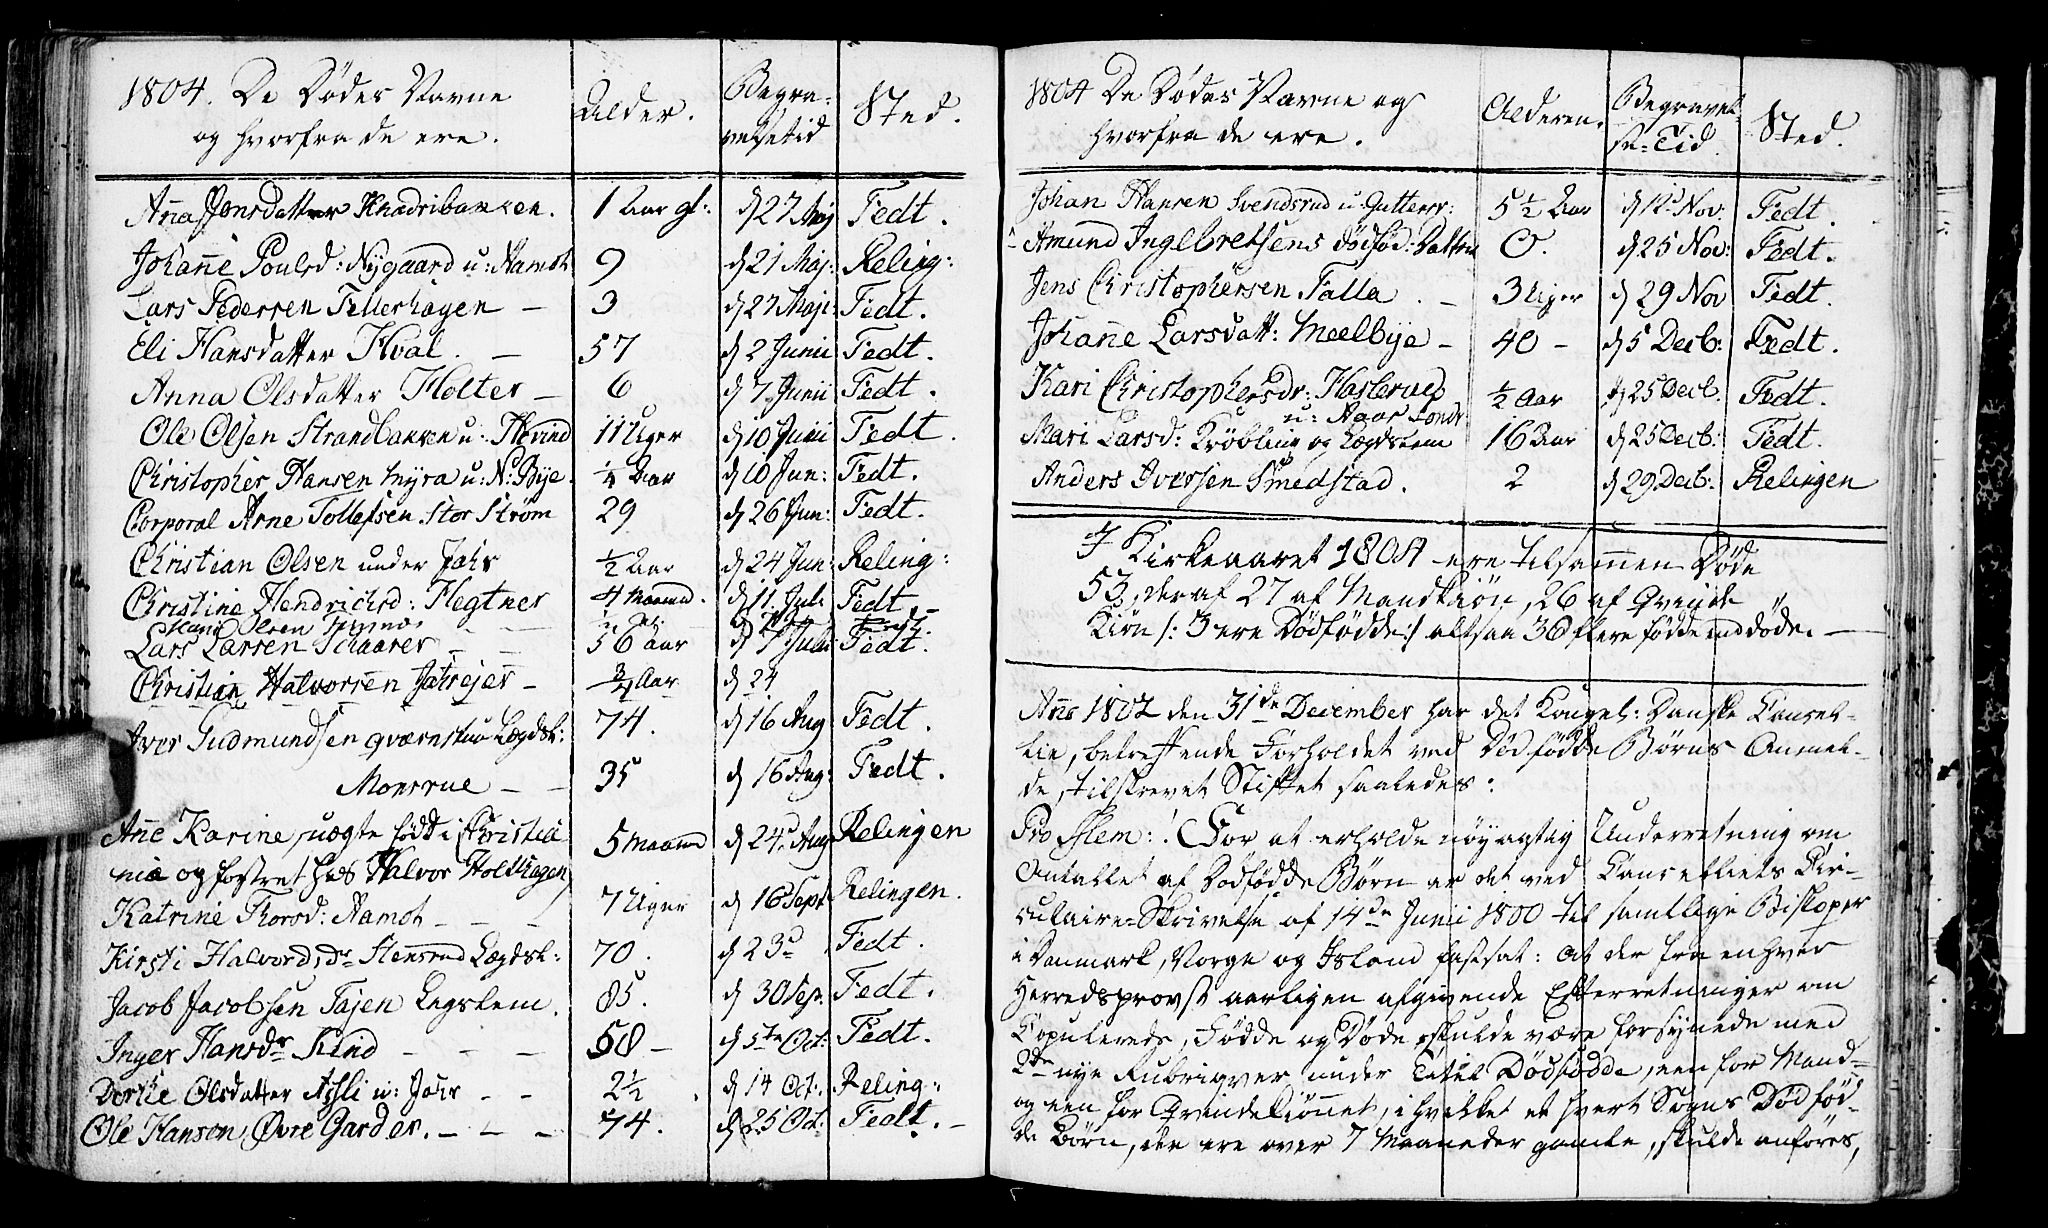 1804. De Dödes Navne
og hvorfra de ere.
Alder.
Begra-
velsetid
Sted.
Aña Jonsdatter Knadribakken. 1 Aar gl: d 27 Maj Fedt.
Johañe Poulsd: Nygaard u: Aamot 9 d 21 Maj: Reling:
Lars Pedersen Tellerhagen – 3 d 27 Maji: Fedt.
Eli Hansdatter Hval. – 57 d 2 Junii Fedt.
Anna Olsdatter Holter – 6 d 7 Junii Fedt.
Ole Olsen Strandbakken u: Hovind 11 Uger d 10 Junii Fedt.
Christopher Hansen Myra u: N: Bye. ¼ Aar d 10 Jun: Fedt.
Corporal Arne Tollefsen Stor Ström 29 d 26 Jun: Fedt.
Christian Olsen under Jahr ½ Aar d 24 Jun: Reling:
Christine Hendrichsd: Hegtner 4 Maaned. d 11 Jul: Fedt.
Hans Olsen
Lars Larsen Schaarer – – 56 Aar d 7 Juli Fedt.
Christian Halvorsen Jahrejer – ¾ Aar d 24
Iver Gudmundsen qværnstuo Lægdsl: 74. d 16 Aug Fedt.
Monsrue – – 35 d 16 Aug: Fedt.
Añe Karine, uægte född i Christia
nia og fostret hos Halvor Holthagen 5 Maaned d 24 Aug Relingen
Katrine Thorsd: Aamot – – – 7 Uger d 16 Sept Relingen.
Kirsti Halvordsdr Stensrud Lægdsl: 70. d 23d Fedt.
Jacob Jacobsen Tajen Legslem. 85. d 30 Sep. Fedt.
Inger Hansdr Kind – – – 58 – d 5te Oct: Fedt.
Dorthe Olsdatter Asli u: Jahr – – 2½ d 14 Oct: Reling:
Ole Hansen Övre Garder. – – – 74. d 25 Oct: Fedt. –
1804 De Dödes Navne og
hvorfra de ere.
Alderen.
Begravel-
se-Tid.
Sted.
Johan Hansen Svendsrud u: Guttersr: 5½ Aar d 12 Nov: Fedt.
Amund Ingebretsens dödföd: Datter 0. d 25 Nov: Fedt.
Jens Christophersen Falla. – 3 Uger d 29 Nov Fedt.
Johañe Larsdatt: Meelbye – 40 – d 5 Decb: Fedt.
Kari Christophersdr: Haslerud ½ Aar d 25 Decb. Fedt.
u: Aaos
Mari Larsd: og Lægdslem 16 Aar d 25 Decb: Fedt.
Anders Iversen Smedstad. 2 d 29 Decb: Relingen
I Kirkeaaret 1804 ere tilsamen Döde
53, deraf 27 af Mandkiön, 26 af Qvinde
Kiön /: 3 ere Dödfödde:/ altsaa 36 flere födde end döde. –
Año 1802 den 31de December har det Kongel: Danske Cancel-
lie, betreffende Forholdet ved Dödfödde Börns Anmel-
de, tilskrevet Stiftet saaledes:
Pro Mem:! For at erholde nöyagtig Underretning om
Antallet af Dödfödde Börn er det ved Cancelliets Cir-
culaire-Skrivelse af 14de Junii 1800 til samtlige Biskoper
i Danmark, Norge og Island fastsat: at der fra enhver
Herredsprovst aarligen afgivende Efterretninger om
Copulerede, Födde og Döde, skulde være forsynede med
2de nye Rubriqver under Titel Dödfödde, een for Mand-
og een for Qvindekiönnet, i hvilket et hvert Sogns Dödföd-
de Börn, der ere over 7 Maaneder gamle, skulde anföres,